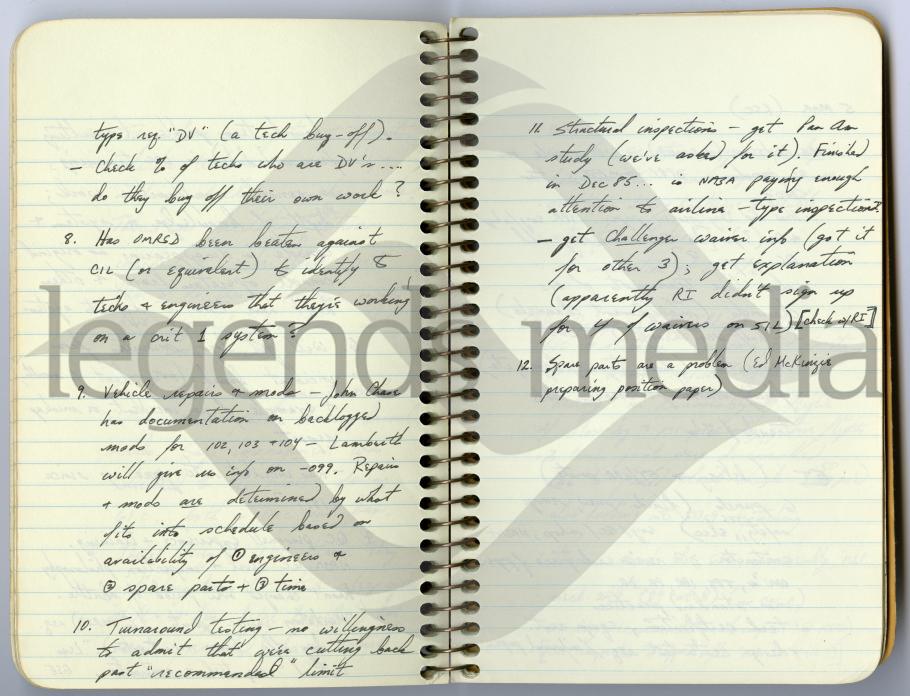 type req. "DV" (a tech buy-off).
— Check % of techs who are DV's ....
do they buy off their own work?
8. Has OMRSD been beaten against
CIL (or equivalent) to identify to
techs + engineers that they're working
on a crit 1 system?
9. Vehicle repairs + mods — John Chase
has documentation on backlogged
mods for 102, 103 + 104 — Lamberth
will give us info on -099. Repairs
+ mods are determined by what
fits into schedule based on
availability of ① engineers +
② spare parts + ③ time
10. Turnaround testing — no willingness
to admit that we're cutting back
past "recommended" limit
11. Structural inspections — get Pan Am
study (we've asked for it). Finished
in Dec 85... is NASA paying enough
attention to airline-type inspections?
— get Challenger waiver info (got it
for other 3); get explanation
(apparently RI didn't sign up
for 4 of waivers on 51L) [check w/RI]
12. Spare parts are a problem (Ed McKenzie
preparing position paper)
legends media